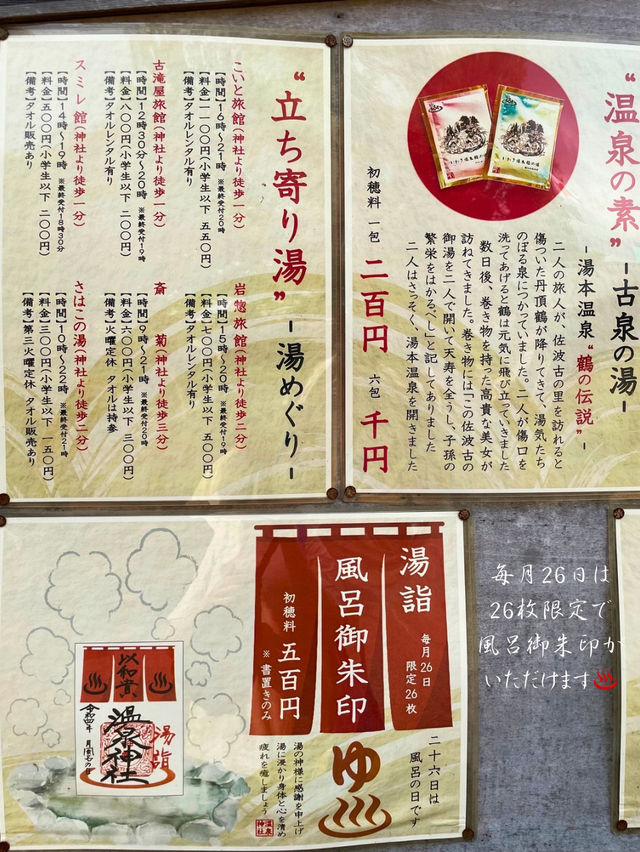 “温泉の素”
-古泉の湯-
-湯本温泉“鶴の伝説”-
二人の旅人が、佐波古の里を訪れると
傷ついた丹頂鶴が降りてきて、湯気たち
のぼる泉につかっていました。二人が傷口を
洗ってあげると鶴は元気に飛び立っていきました
数日後、巻き物を持った高貴な美女が
訪ねてきました。巻き物には「この佐波古の
御湯を二人で開いて天寿を全うし、子孫の
繁栄をはかるべし」と記してありました
二人はさっそく、湯本温泉を開きました
初穂料 一包 二百円 六包 千円
“立ち寄り湯”
-湯めぐり-
こいと旅館(神社より徒歩一分)
【時間】16時〜21時 ※最終受付20時
【料金】一一〇〇円(小学生以下 五五〇円)
【備考】タオルレンタル有り
古滝屋旅館(神社より徒歩一分)
【時間】12時30分〜20時 ※最終受付19時
【料金】八〇〇円(小学生以下 四〇〇円)
【備考】タオルレンタル有り
スミレ館(神社より徒歩一分)
【時間】14時〜19時 ※最終受付18時30分
【料金】五〇〇円(小学生以下 二〇〇円)
【備考】タオル販売あり
岩惣旅館(神社より徒歩二分)
【時間】15時〜20時 ※最終受付19時
【料金】七〇〇円(小学生以下 五〇〇円)
【備考】タオルレンタル有り
斎 菊(神社より徒歩三分)
【時間】9時〜21時 ※最終受付20時
【料金】六〇〇円(小学生以下 三〇〇円)
【備考】火曜定休 タオルは持参
さはこの湯(神社より徒歩二分)
【時間】10時〜22時 ※最終受付21時
【料金】三〇〇円(小学生以下 一五〇円)
【備考】第三火曜定休 タオル販売あり
湯詣
毎月26日
限定26枚
風呂御朱印
初穂料 五百円
※書置きのみ
二十六日は
風呂の日です
ゆ
湯の神様に感謝を申上げ
湯に浸かり身体と心を清め
疲れを癒しましょう
温泉神社
以和貴
湯詣
温泉神社
令和四年 月風呂の日
毎月26日は
26枚限定で
風呂御朱印が
いただけます♨